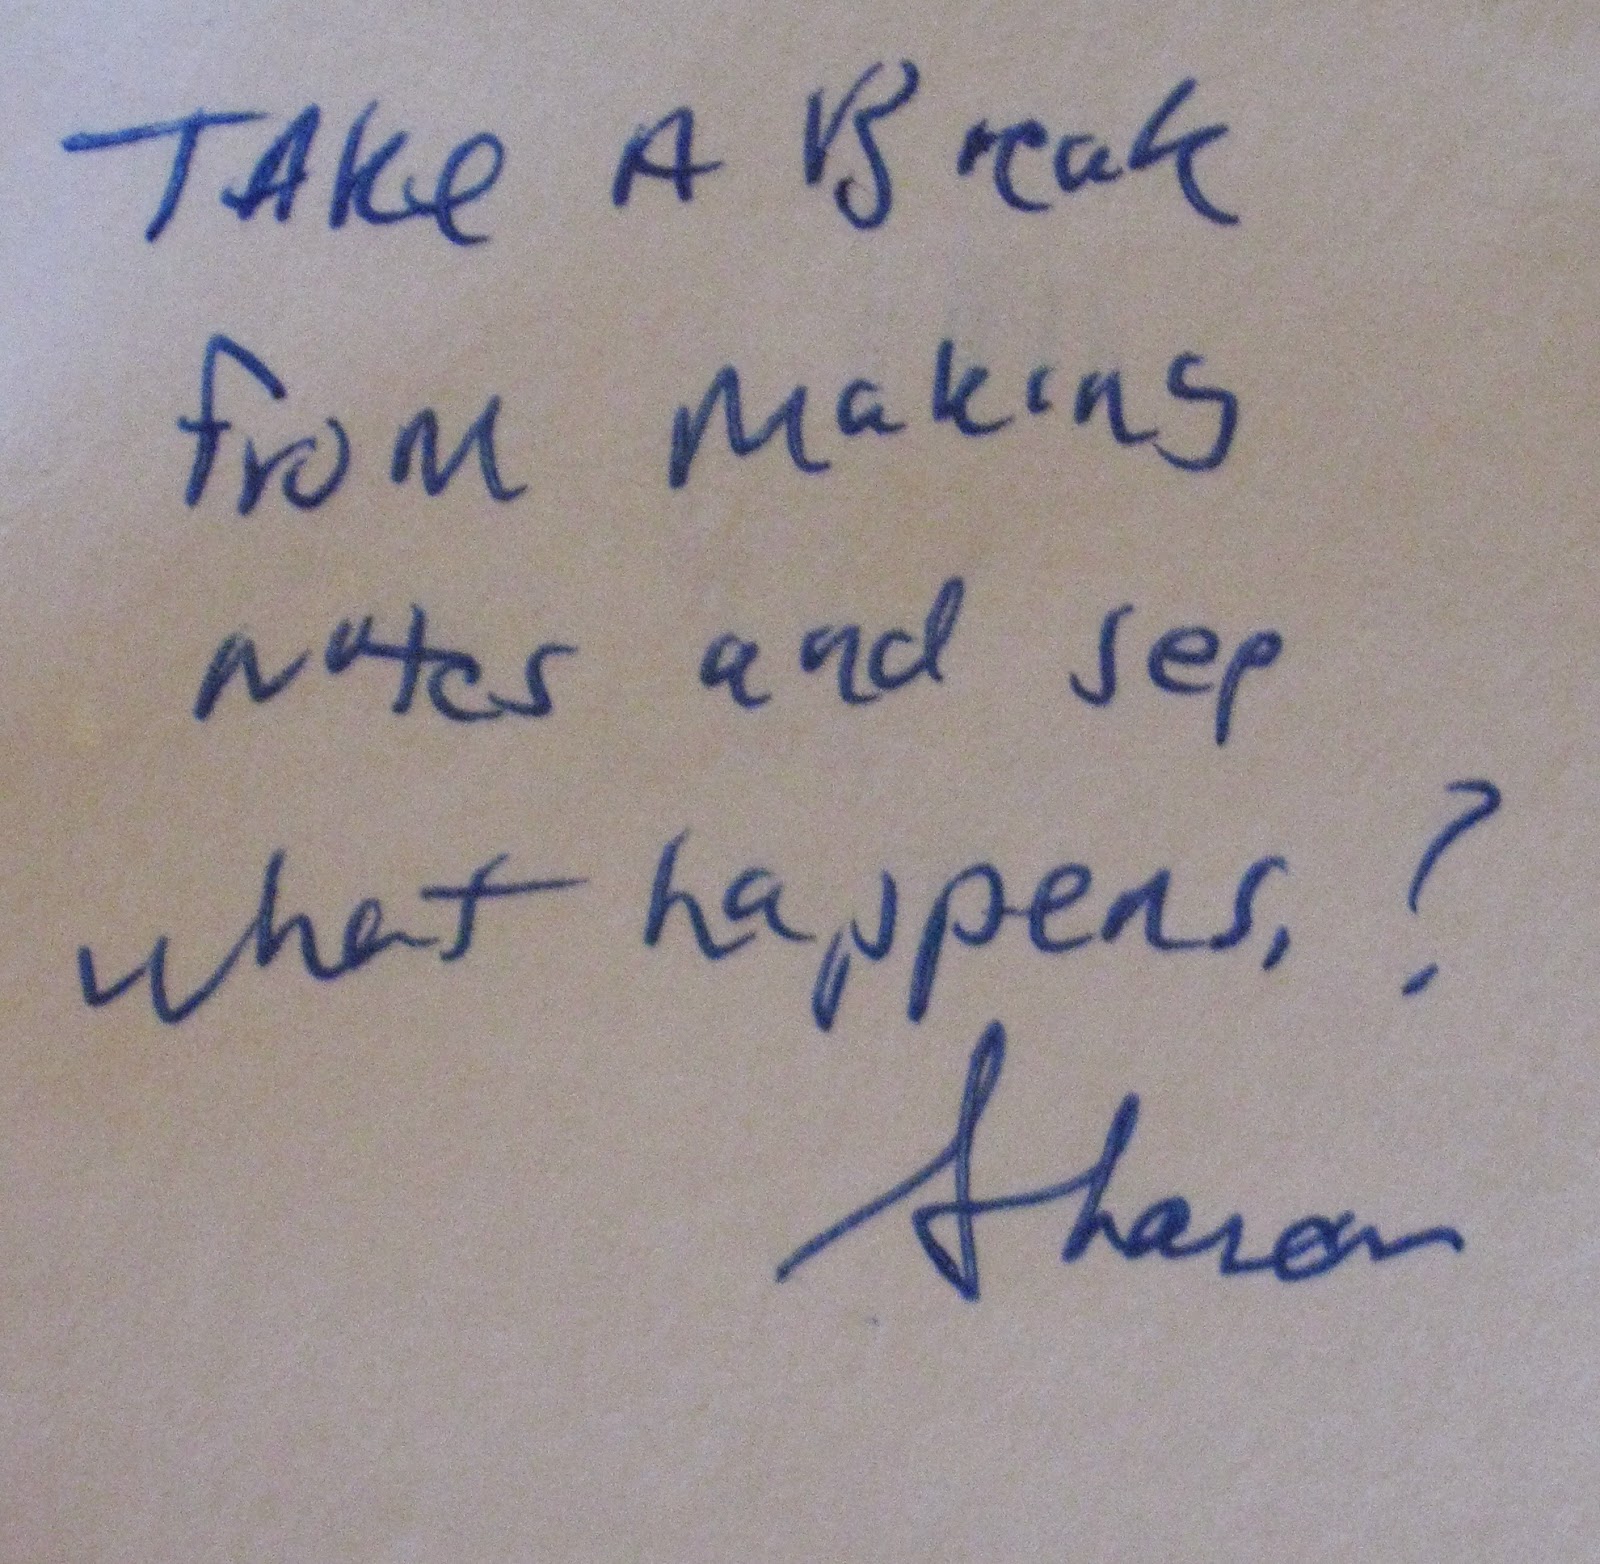 TAKe A Break
from Making
notes and see
what happens. ?
Sharon